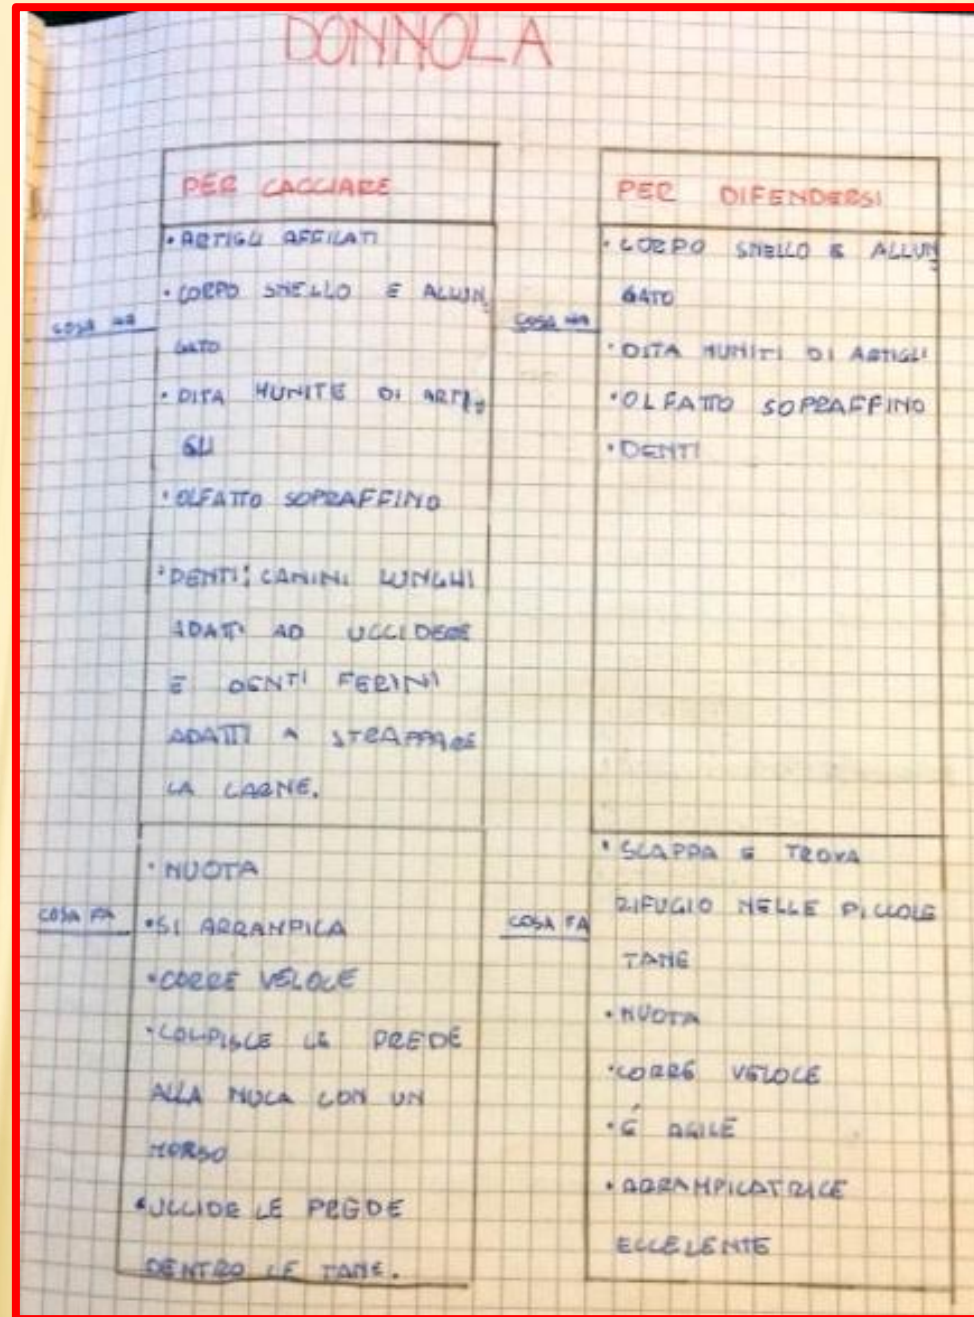 DONNOLA
PER CACCIARE
• ARTIGLI AFFILATI
• CORPO SNELLO E ALLUN
GATO
COSA HA
• DITA MUNITE DI ARTI
GLI
• OLFATTO SOPRAFFINO
• DENTI: CANINI LUNGHI
ADATTI AD UCCIDERE
E DENTI FERINI
ADATTI A STRAPPARE
LA CARNE.
• NUOTA
COSA FA
• SI ARRAMPICA
• CORRE VELOCE
• COLPISCE LE PREDE
ALLA NUCA CON UN
MORSO
• UCCIDE LE PREDE
DENTRO LE TANE.
PER DIFENDERSI
• CORPO SNELLO E ALLUN
GATO
COSA HA
• DITA MUNITI DI ARTIGLI
• OLFATTO SOPRAFFINO
• DENTI
• SCAPPA E TROVA
RIFUGIO NELLE PICCOLE
COSA FA
TANE
• NUOTA
• CORRE VELOCE
• É AGILE
• ARRAMPICATRICE
ECCELENTE